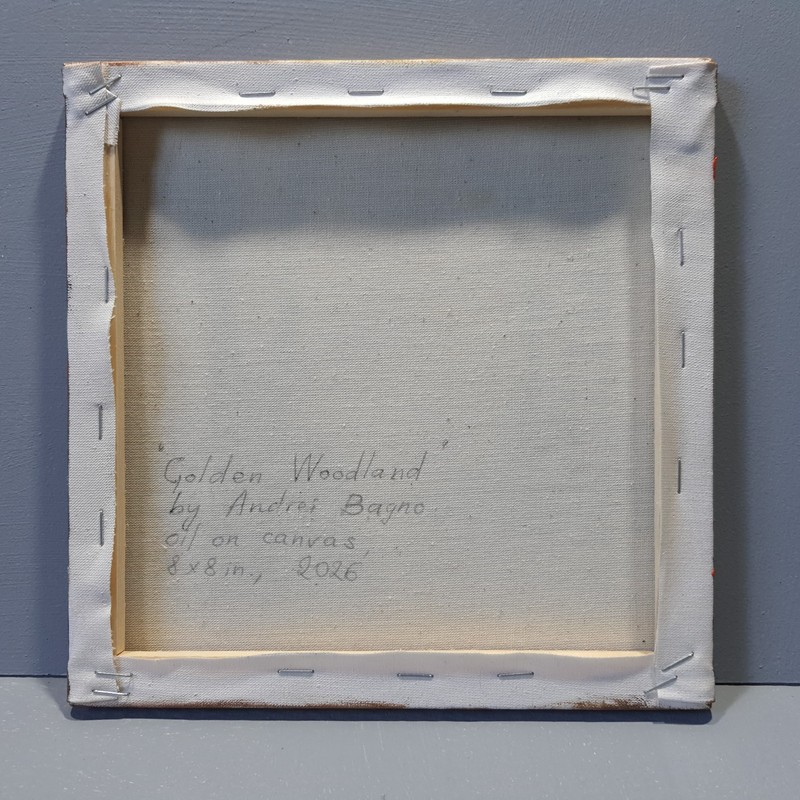 "Golden Woodland"
by Andrei Bagno
oil on canvas,
8x8in., 2026